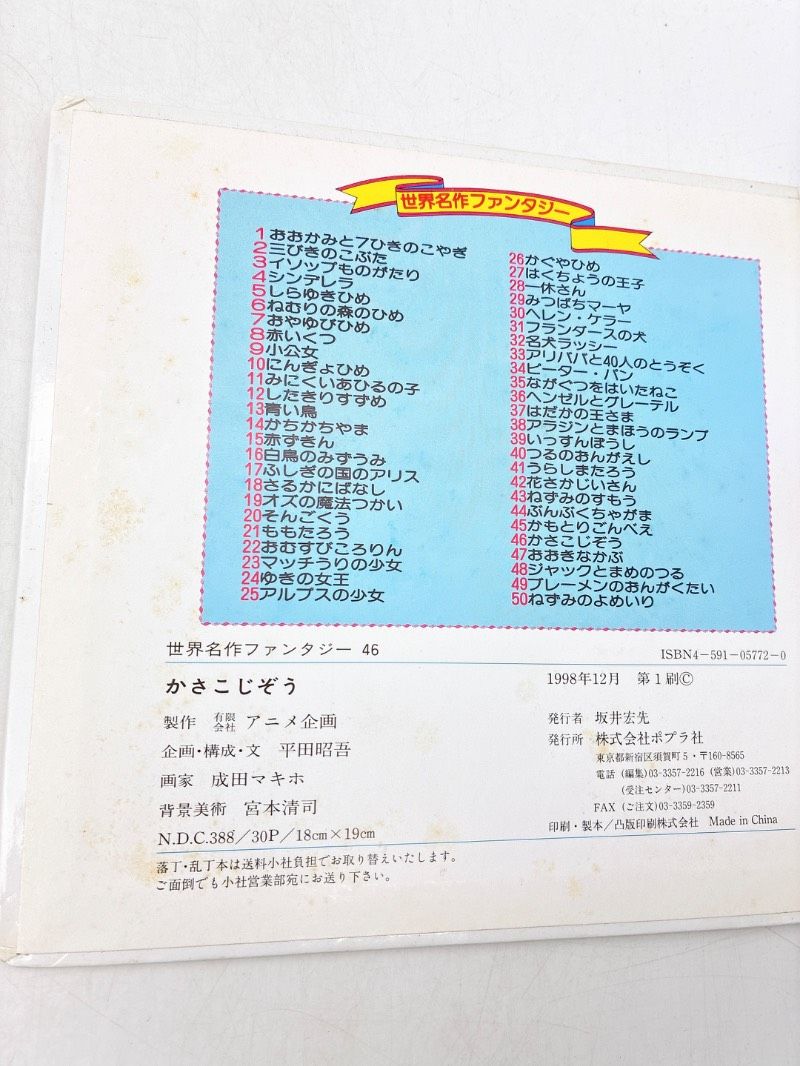 世界名作ファンタジー
1おおかみと7ひきのこやぎ
2三びきのこぶた
3イソップものがたり
4シンデレラ
5しらゆきひめ
6ねむりの森のひめ
7おやゆびひめ
8赤いくつ
9小公女
10にんぎょひめ
11みにくいあひるの子
12したきりすずめ
13青い鳥
14かちかちやま
15赤ずきん
16白鳥のみずうみ
17ふしぎの国のアリス
18さるかにばなし
19オズの魔法つかい
20そんごくう
21ももたろう
22おむすびころりん
23マッチうりの少女
24ゆきの女王
25アルプスの少女
26かぐやひめ
27はくちょうの王子
28一休さん
29みつばちマーヤ
30ヘレン・ケラー
31フランダースの犬
32名犬ラッシー
33アリババと40人のとうぞく
34ピーター・パン
35ながぐつをはいたねこ
36ヘンゼルとグレーテル
37はだかの王さま
38アラジンとまほうのランプ
39いっすんぼうし
40つるのおんがえし
41うらしまたろう
42花さかじいさん
43ねずみのすもう
44ぶんぶくちゃがま
45かもとりごんべえ
46かさこじぞう
47おおきなかぶ
48ジャックとまめのつる
49ブレーメンのおんがくたい
50ねずみのよめいり
世界名作ファンタジー 46
かさこじぞう
製作 有限会社 アニメ企画
企画・構成・文 平田昭吾
画家 成田マキホ
背景美術 宮本清司
N.D.C.388/30P/18cm×19cm
落丁・乱丁本は送料小社負担でお取り替えいたします。
ご面倒でも小社営業部宛にお送り下さい。
ISBN4-591-05772-0
1998年12月 第1刷Ⓒ
発行者 坂井宏先
発行所 株式会社ポプラ社
東京都新宿区須賀町5・〒160-8565
電話 (編集)03-3357-2216 (営業)03-3357-2213
(受注センター)03-3357-2211
FAX (ご注文)03-3359-2359
印刷・製本/凸版印刷株式会社 Made in China